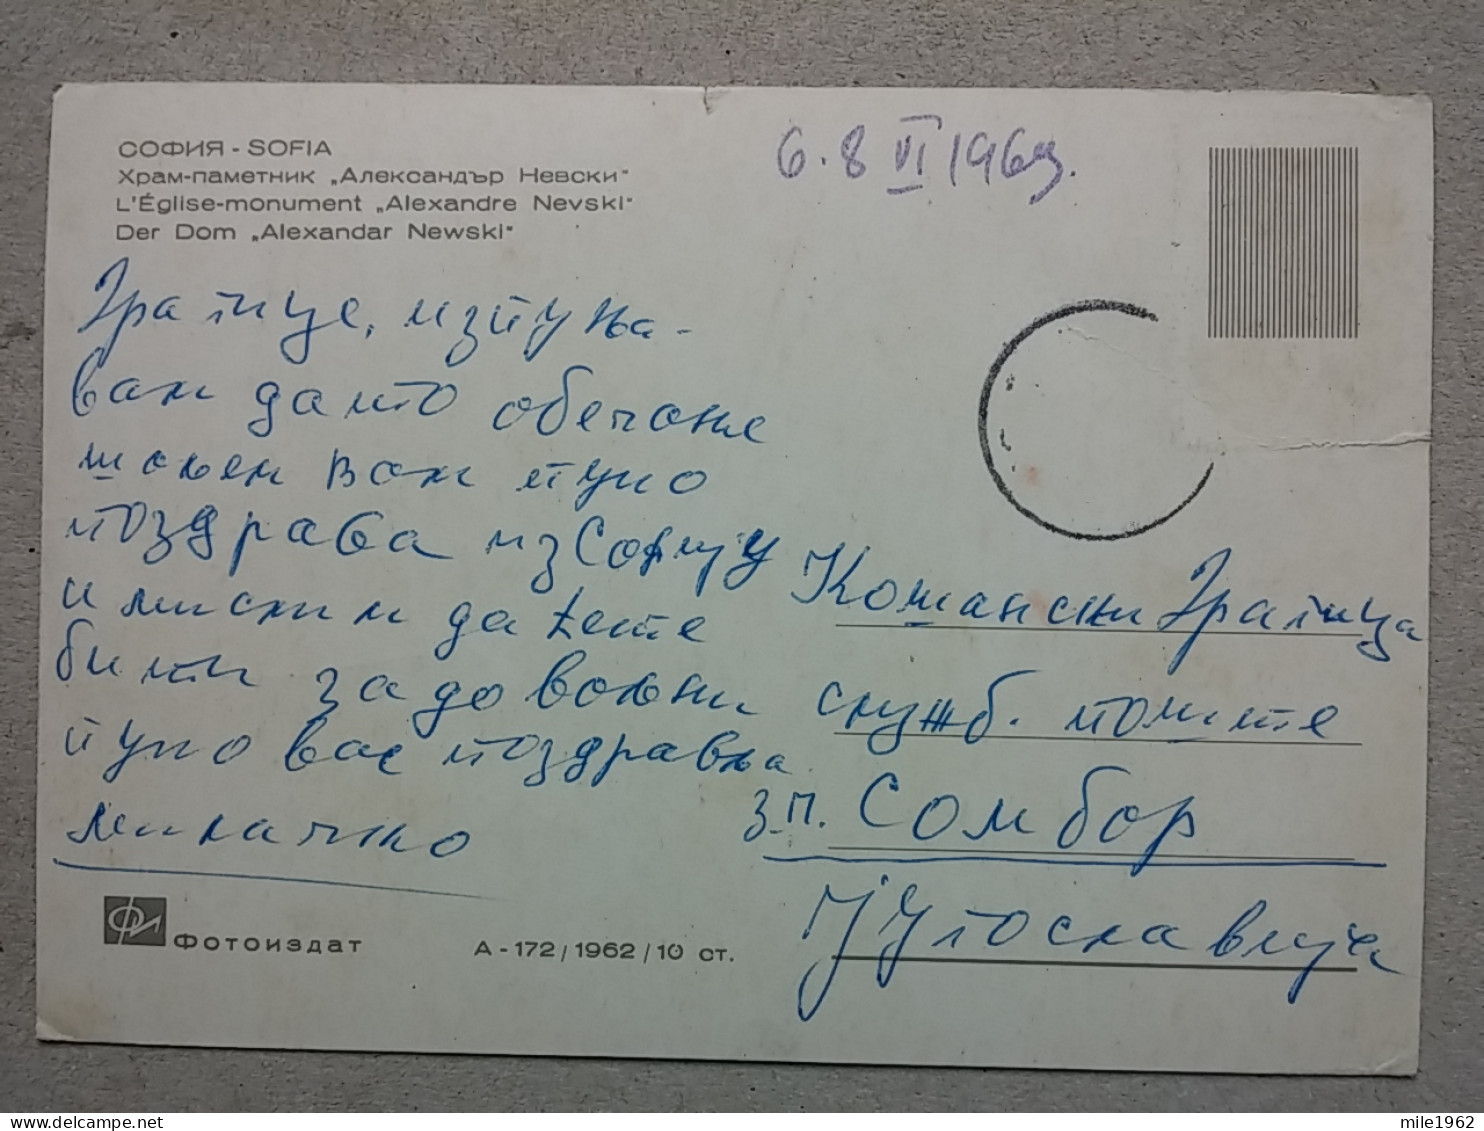 СОФИЯ - SOFIA
Храм-паметник „Александър Невски"
L'Église-monument „Alexandre Nevski"
Der Dom „Alexandar Newski"
6. 8 VI 1969.
Грагице, изпуња-
вам дато обечање
шаљем вам пуно
поздрава из Софију
и мислим да ћете
бити задовољни
пуно вас поздравља
милачко
Кошански Грагица
служб. поште
з.п. Сомбор
Југославија
Фотоиздат
А - 172 / 1962 / 10 ст.
mile1962